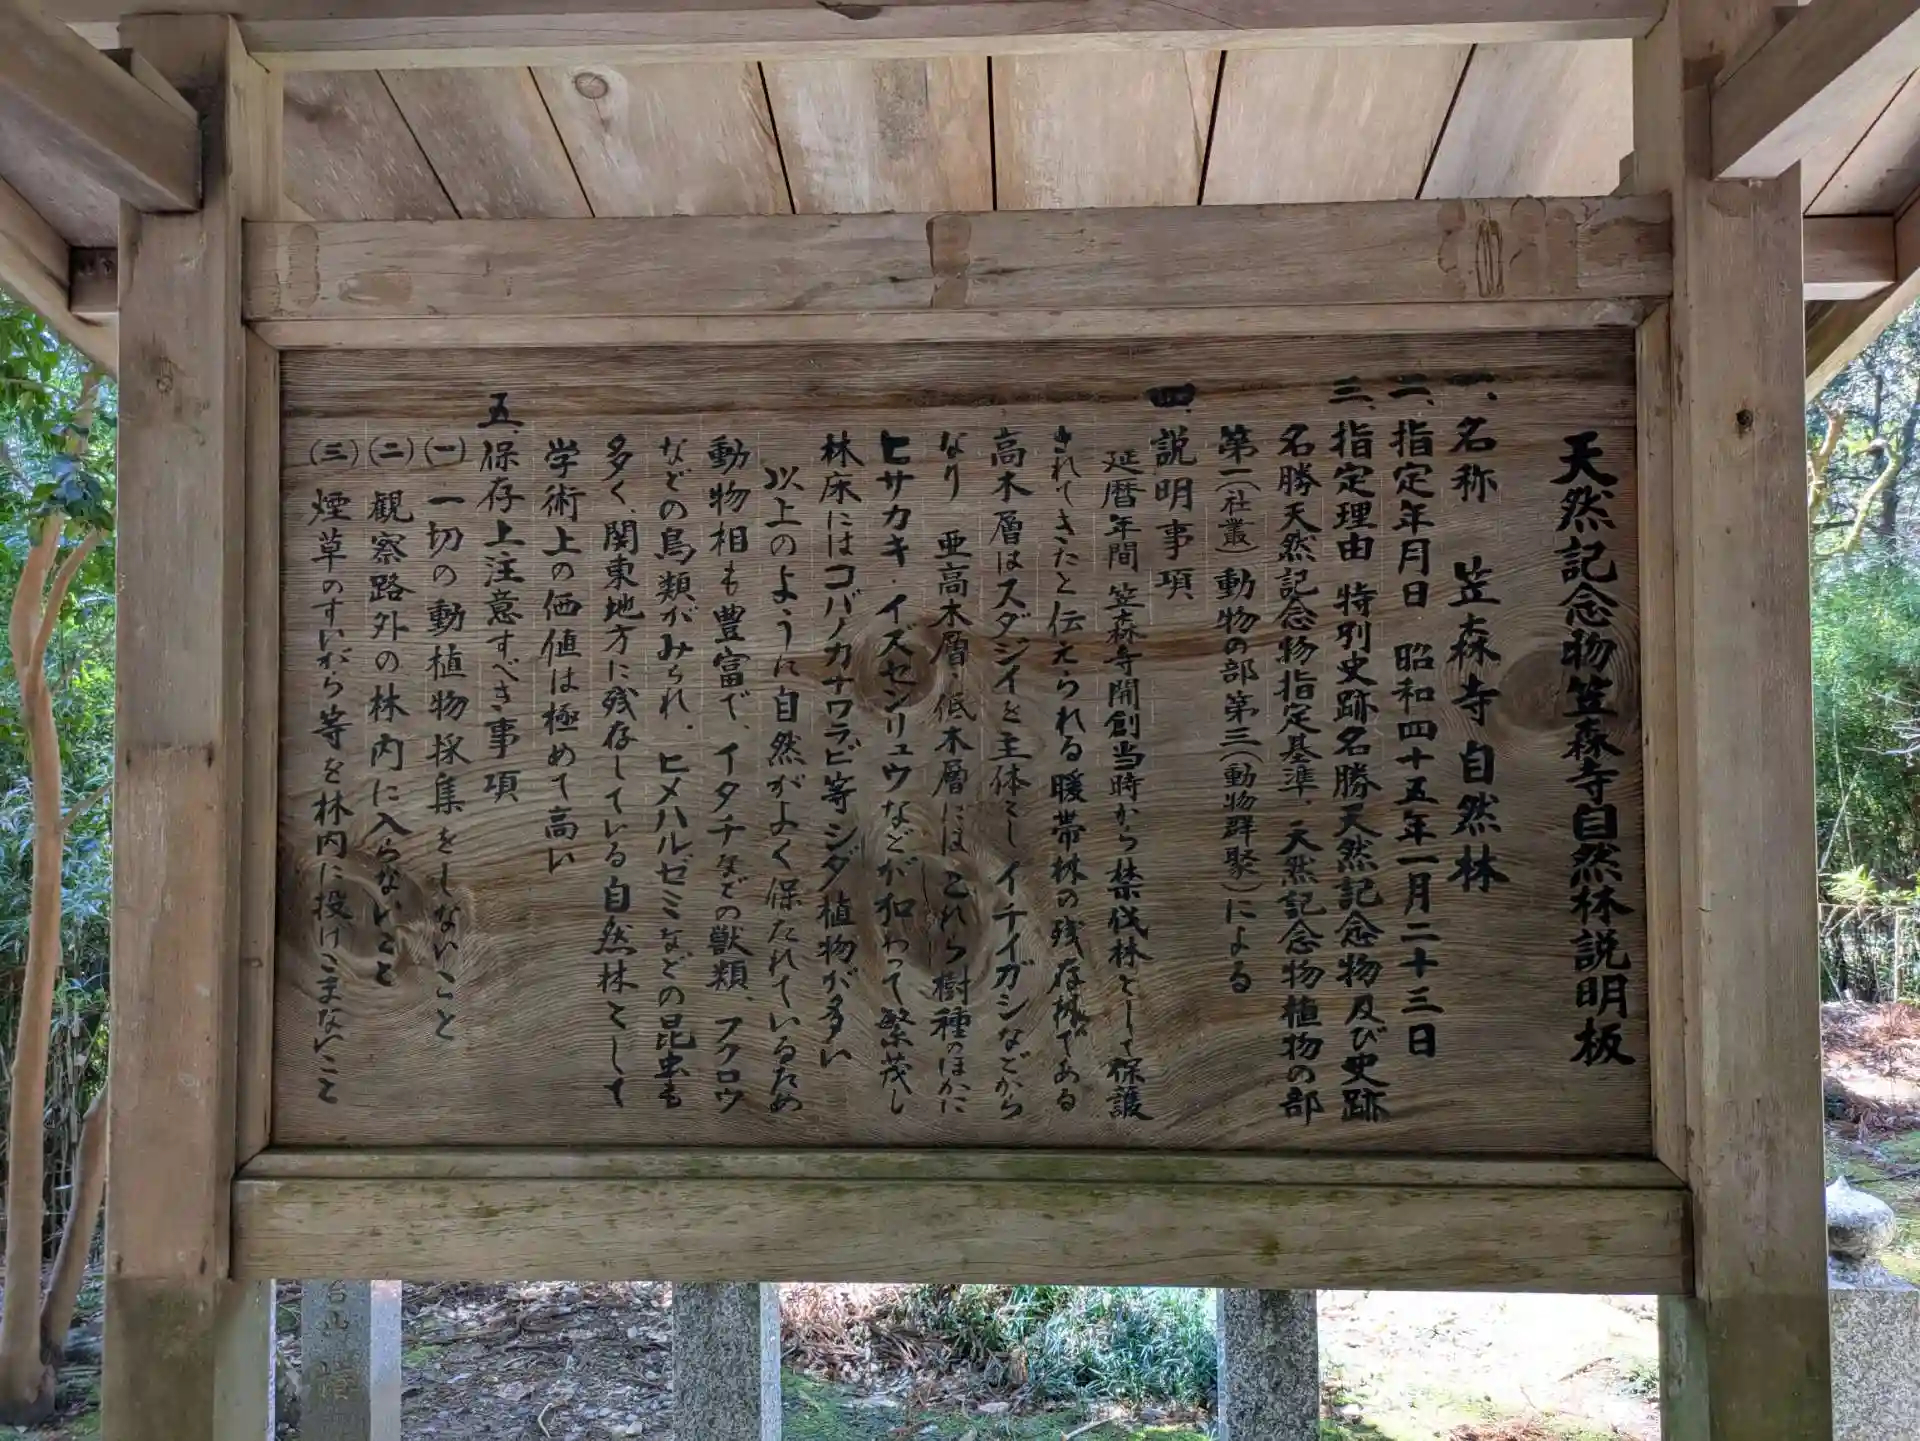 天然記念物笠森寺自然林説明板
一、名称　笠森寺自然林
二、指定年月日　昭和四十五年一月二十三日
三、指定理由　特別史跡名勝天然記念物及び史跡
名勝天然記念物指定基準、天然記念物植物の部
第二（社叢）動物の部第三（動物群聚）による
四、説明事項
延暦年間笠森寺開創当時から禁伐林として保護
されてきたと伝えられる暖帯林の残存林である
高木層はスダジイを主体とし　イチイガシなどから
なり　亜高木層・低木層には　これら樹種のほかに
ヒサカキ・イズセンリュウなどが加わって繁茂し
林床にはコバノカナワラビ等シダ植物が多い
以上のように自然がよく保たれているため
動物相も豊富で、イタチなどの獣類、フクロウ
などの鳥類がみられ、ヒメハルゼミなどの昆虫も
多く、関東地方に残存している自然林として
学術上の価値は極めて高い
五、保存上注意すべき事項
（一）一切の動植物採集をしないこと
（二）観察路外の林内に入らないこと
（三）煙草のすいがら等を林内に投げこまないこと